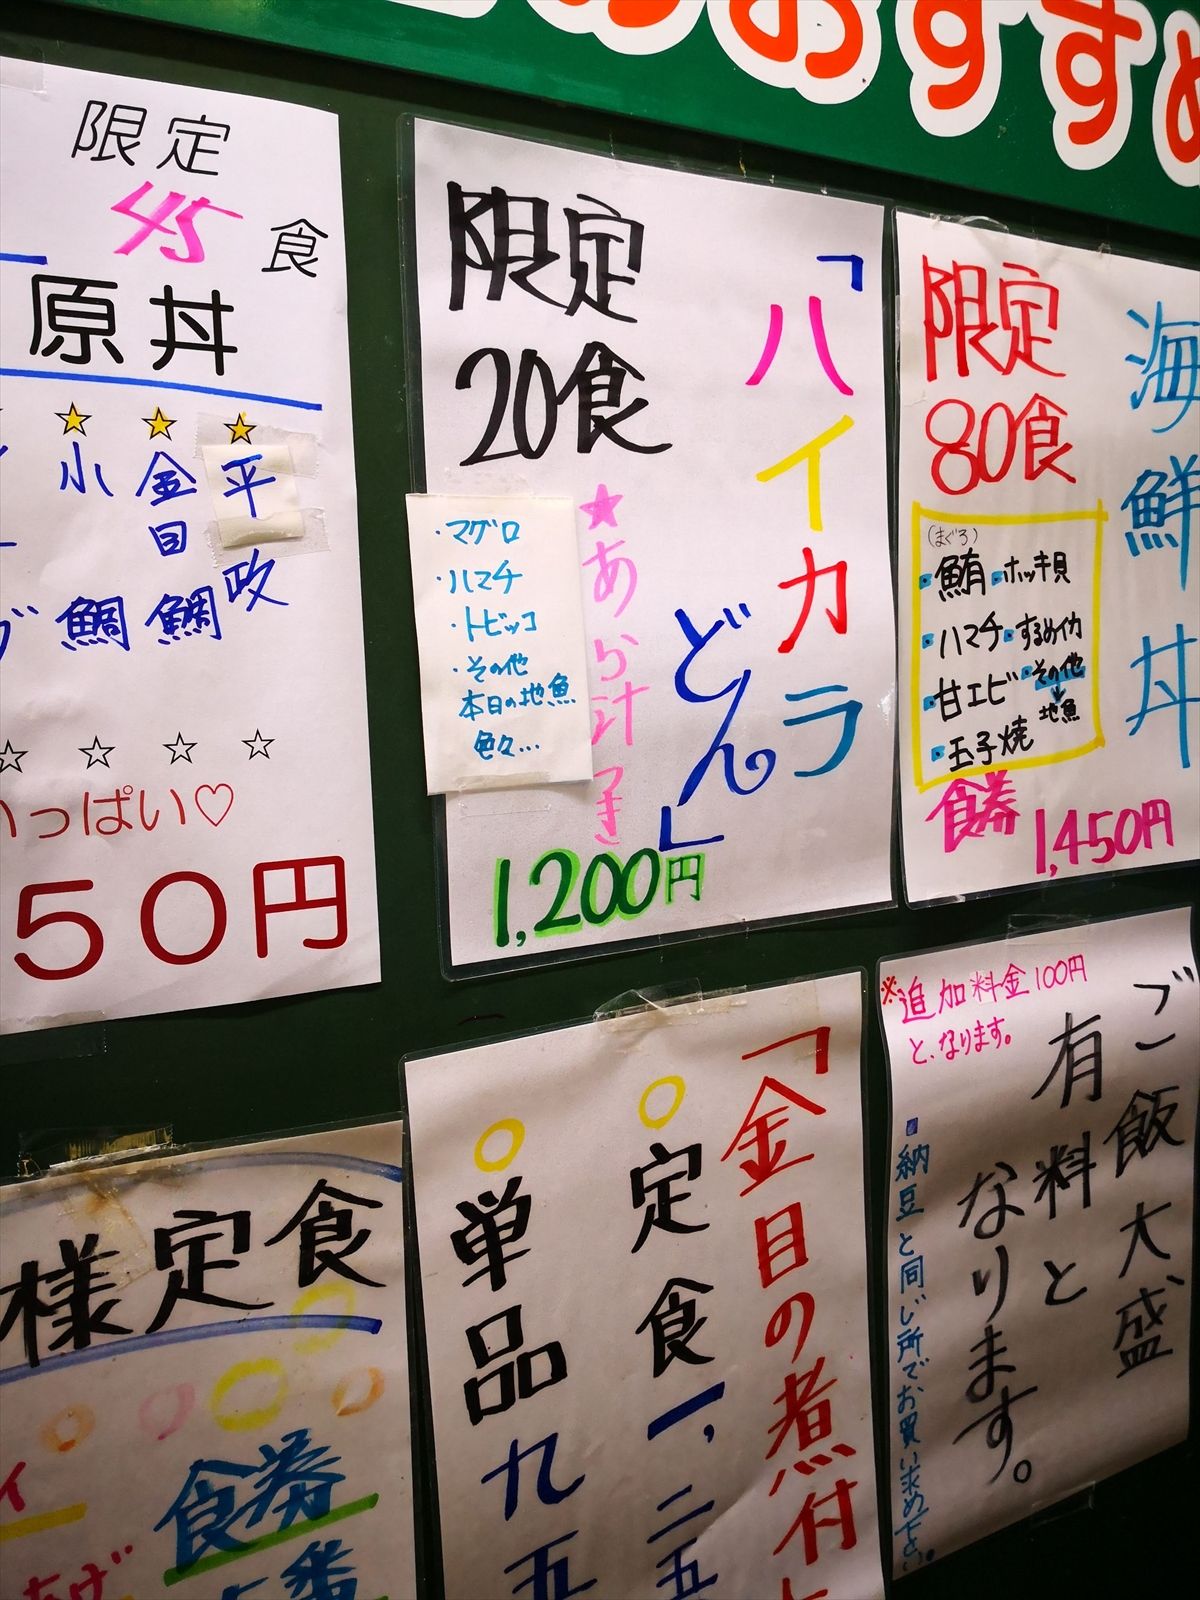 おすすめ
限定
45食
原丼
平政
金目鯛
小鯛
いっぱい♡
50円
限定
20食
「ハイカラ
どん」
★あら汁つき
・マグロ
・ハマチ
・トビッコ
・その他
本日の地魚
色々…
1,200円
限定
80食
海鮮丼
(まぐろ)
・鮪・ホッキ貝
・ハマチ・するめイカ
・甘エビ・その他
地魚
・玉子焼
食券
1,450円
様定食
食券
「金目の煮付
○定食一,二五
○単品九五
ご飯大盛
有料と
なります。
※追加料金100円
と、なります。
・納豆と同じ所でお買い求め下さい。